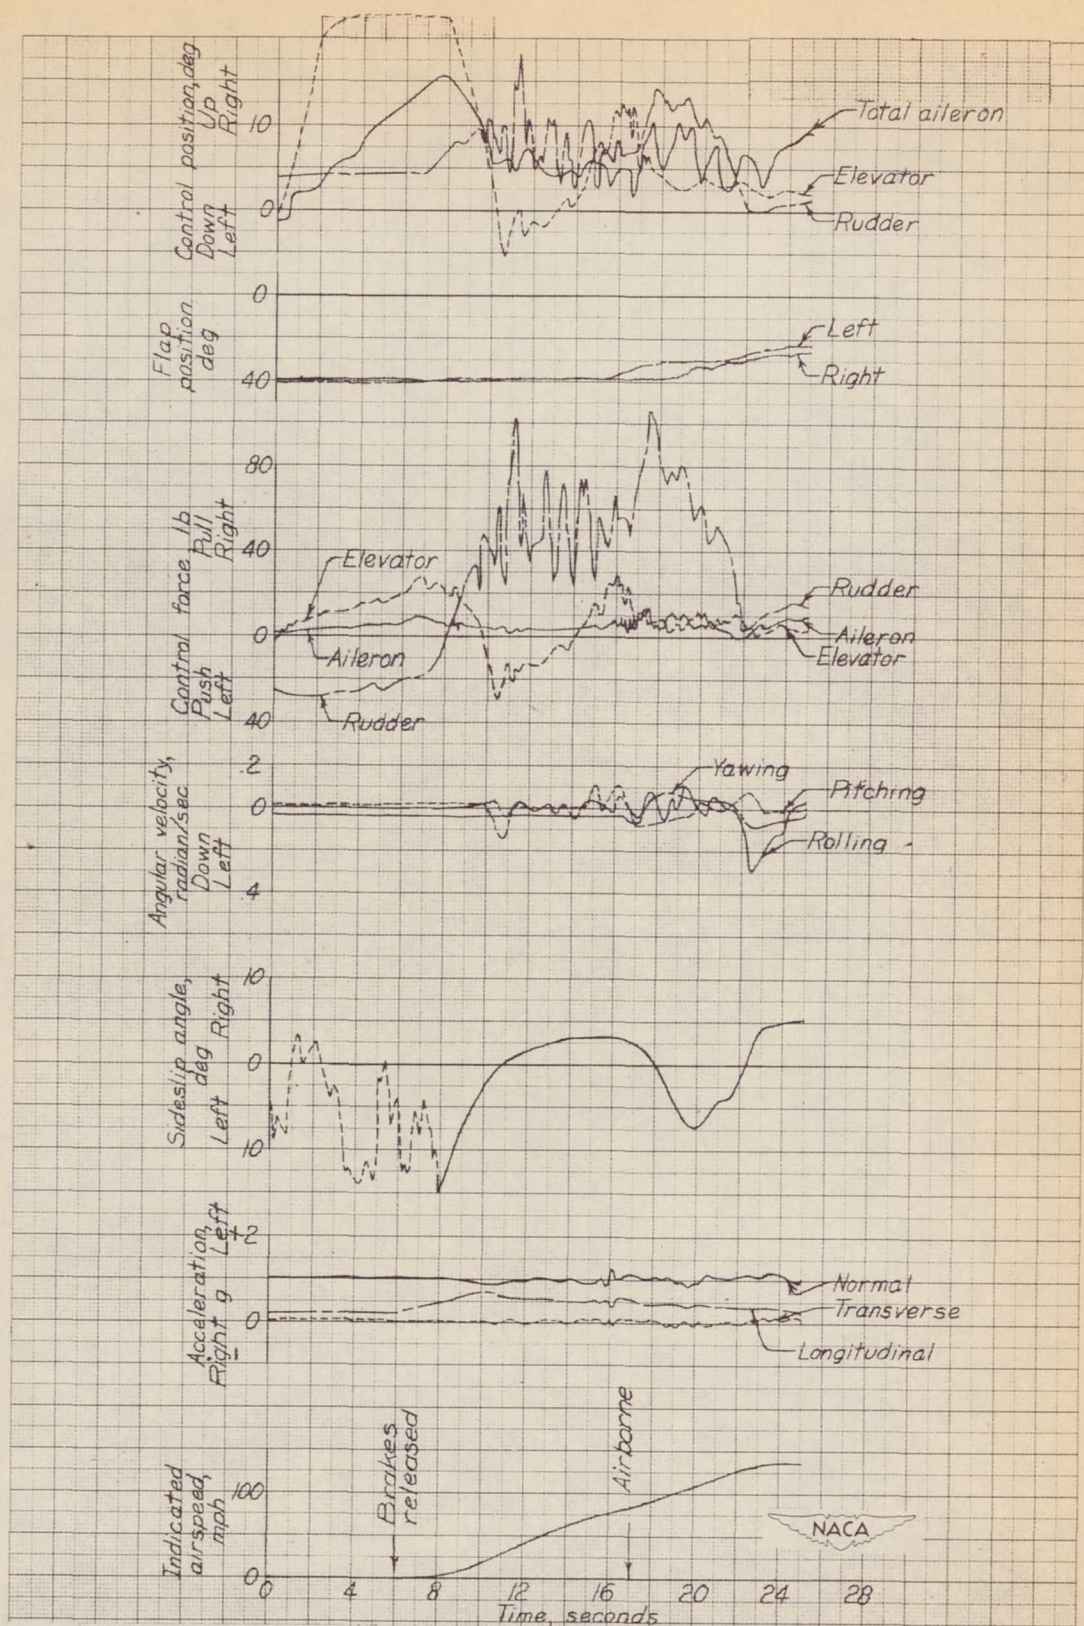 Control position, deg
Down Up
Left Right
10
0
Total aileron
Elevator
Rudder
Flap
position
deg
0
40
Left
Right
Control force, lb
Push Pull
Left Right
80
40
0
40
Elevator
Aileron
Rudder
Rudder
Aileron
Elevator
Angular velocity,
radian/sec
Down
Left
.2
0
.4
Yawing
Pitching
Rolling
Sideslip angle,
deg
Left Right
10
0
10
Acceleration,
g
Right Left
- +
2
0
Normal
Transverse
Longitudinal
Indicated
airspeed,
mph
100
0
Brakes
released
Airborne
NACA
0 4 8 12 16 20 24 28
Time, seconds